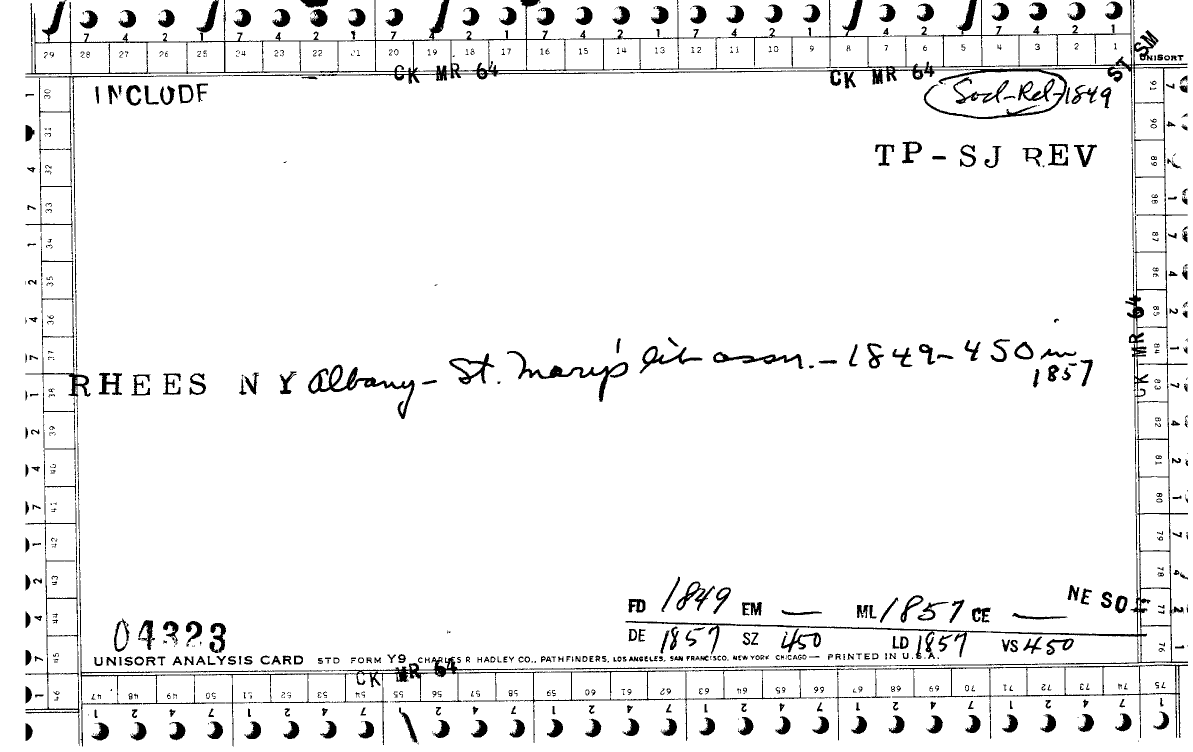 7 4 2 1 7 4 2 1 7 4 2 1 7 4 2 1 7 4 2 1 7 4 2 1 7 4 2 1
29 28 27 26 25 24 23 22 21 20 19 18 17 16 15 14 13 12 11 10 9 8 7 6 5 4 3 2 1
ST SM
UNISORT
CK MR 64 CK MR 64
INCLUDE
Socl-Rel-1849
TP-SJ REV
CK MR 64
RHEES NY Albany - St. Mary's lit assn. - 1849 - 450 in
1857
FD 1849 EM — ML 1857 CE —
NE SO
DE 1857 SZ 450 LD 1857 VS 450
04323
UNISORT ANALYSIS CARD STD FORM Y9 CHARLES R HADLEY CO., PATHFINDERS, LOS ANGELES, SAN FRANCISCO, NEW YORK CHICAGO — PRINTED IN U.S.A.
CK MR 64
30 31 32 33 34 35 36 37 38 39 40 41 42 43 44 45 46
47 48 49 50 51 52 53 54 55 56 57 58 59 60 61 62 63 64 65 66 67 68 69 70 71 72 73 74 75
91 90 89 88 87 86 85 84 83 82 81 80 79 78 77 76